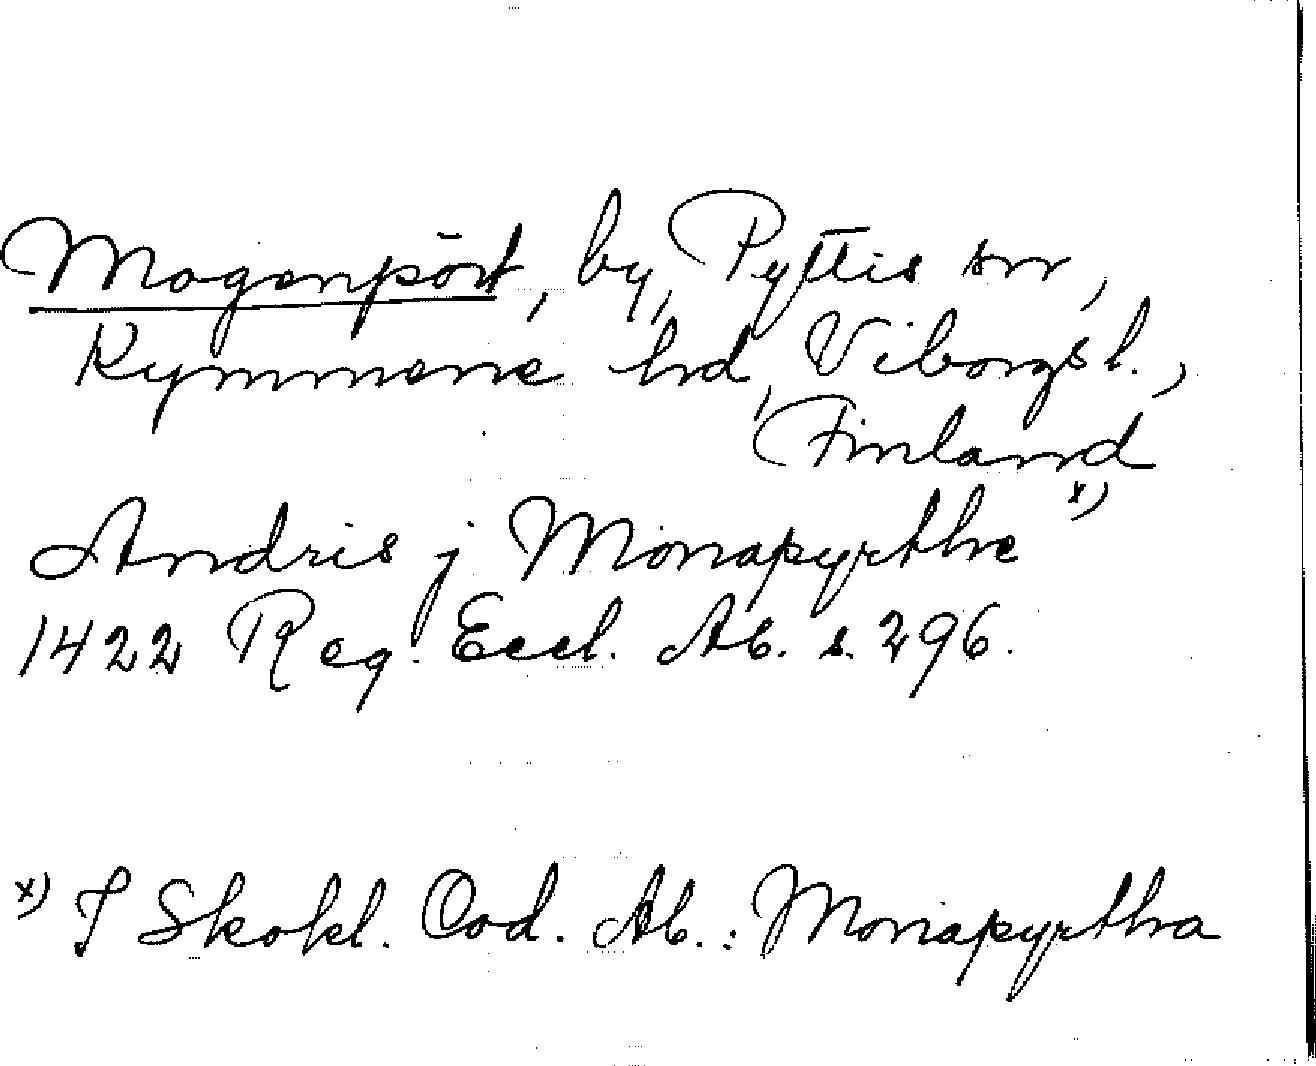 Mogenpört, by, Pyttis sn,
Kymmene hd, Viborgs l.,
Finland
Andris j Monapyrthe x)
1422 Reg. Eccl. Ab. s. 296.
x) I Skokl. Cod. Ab.: Monapyrtha